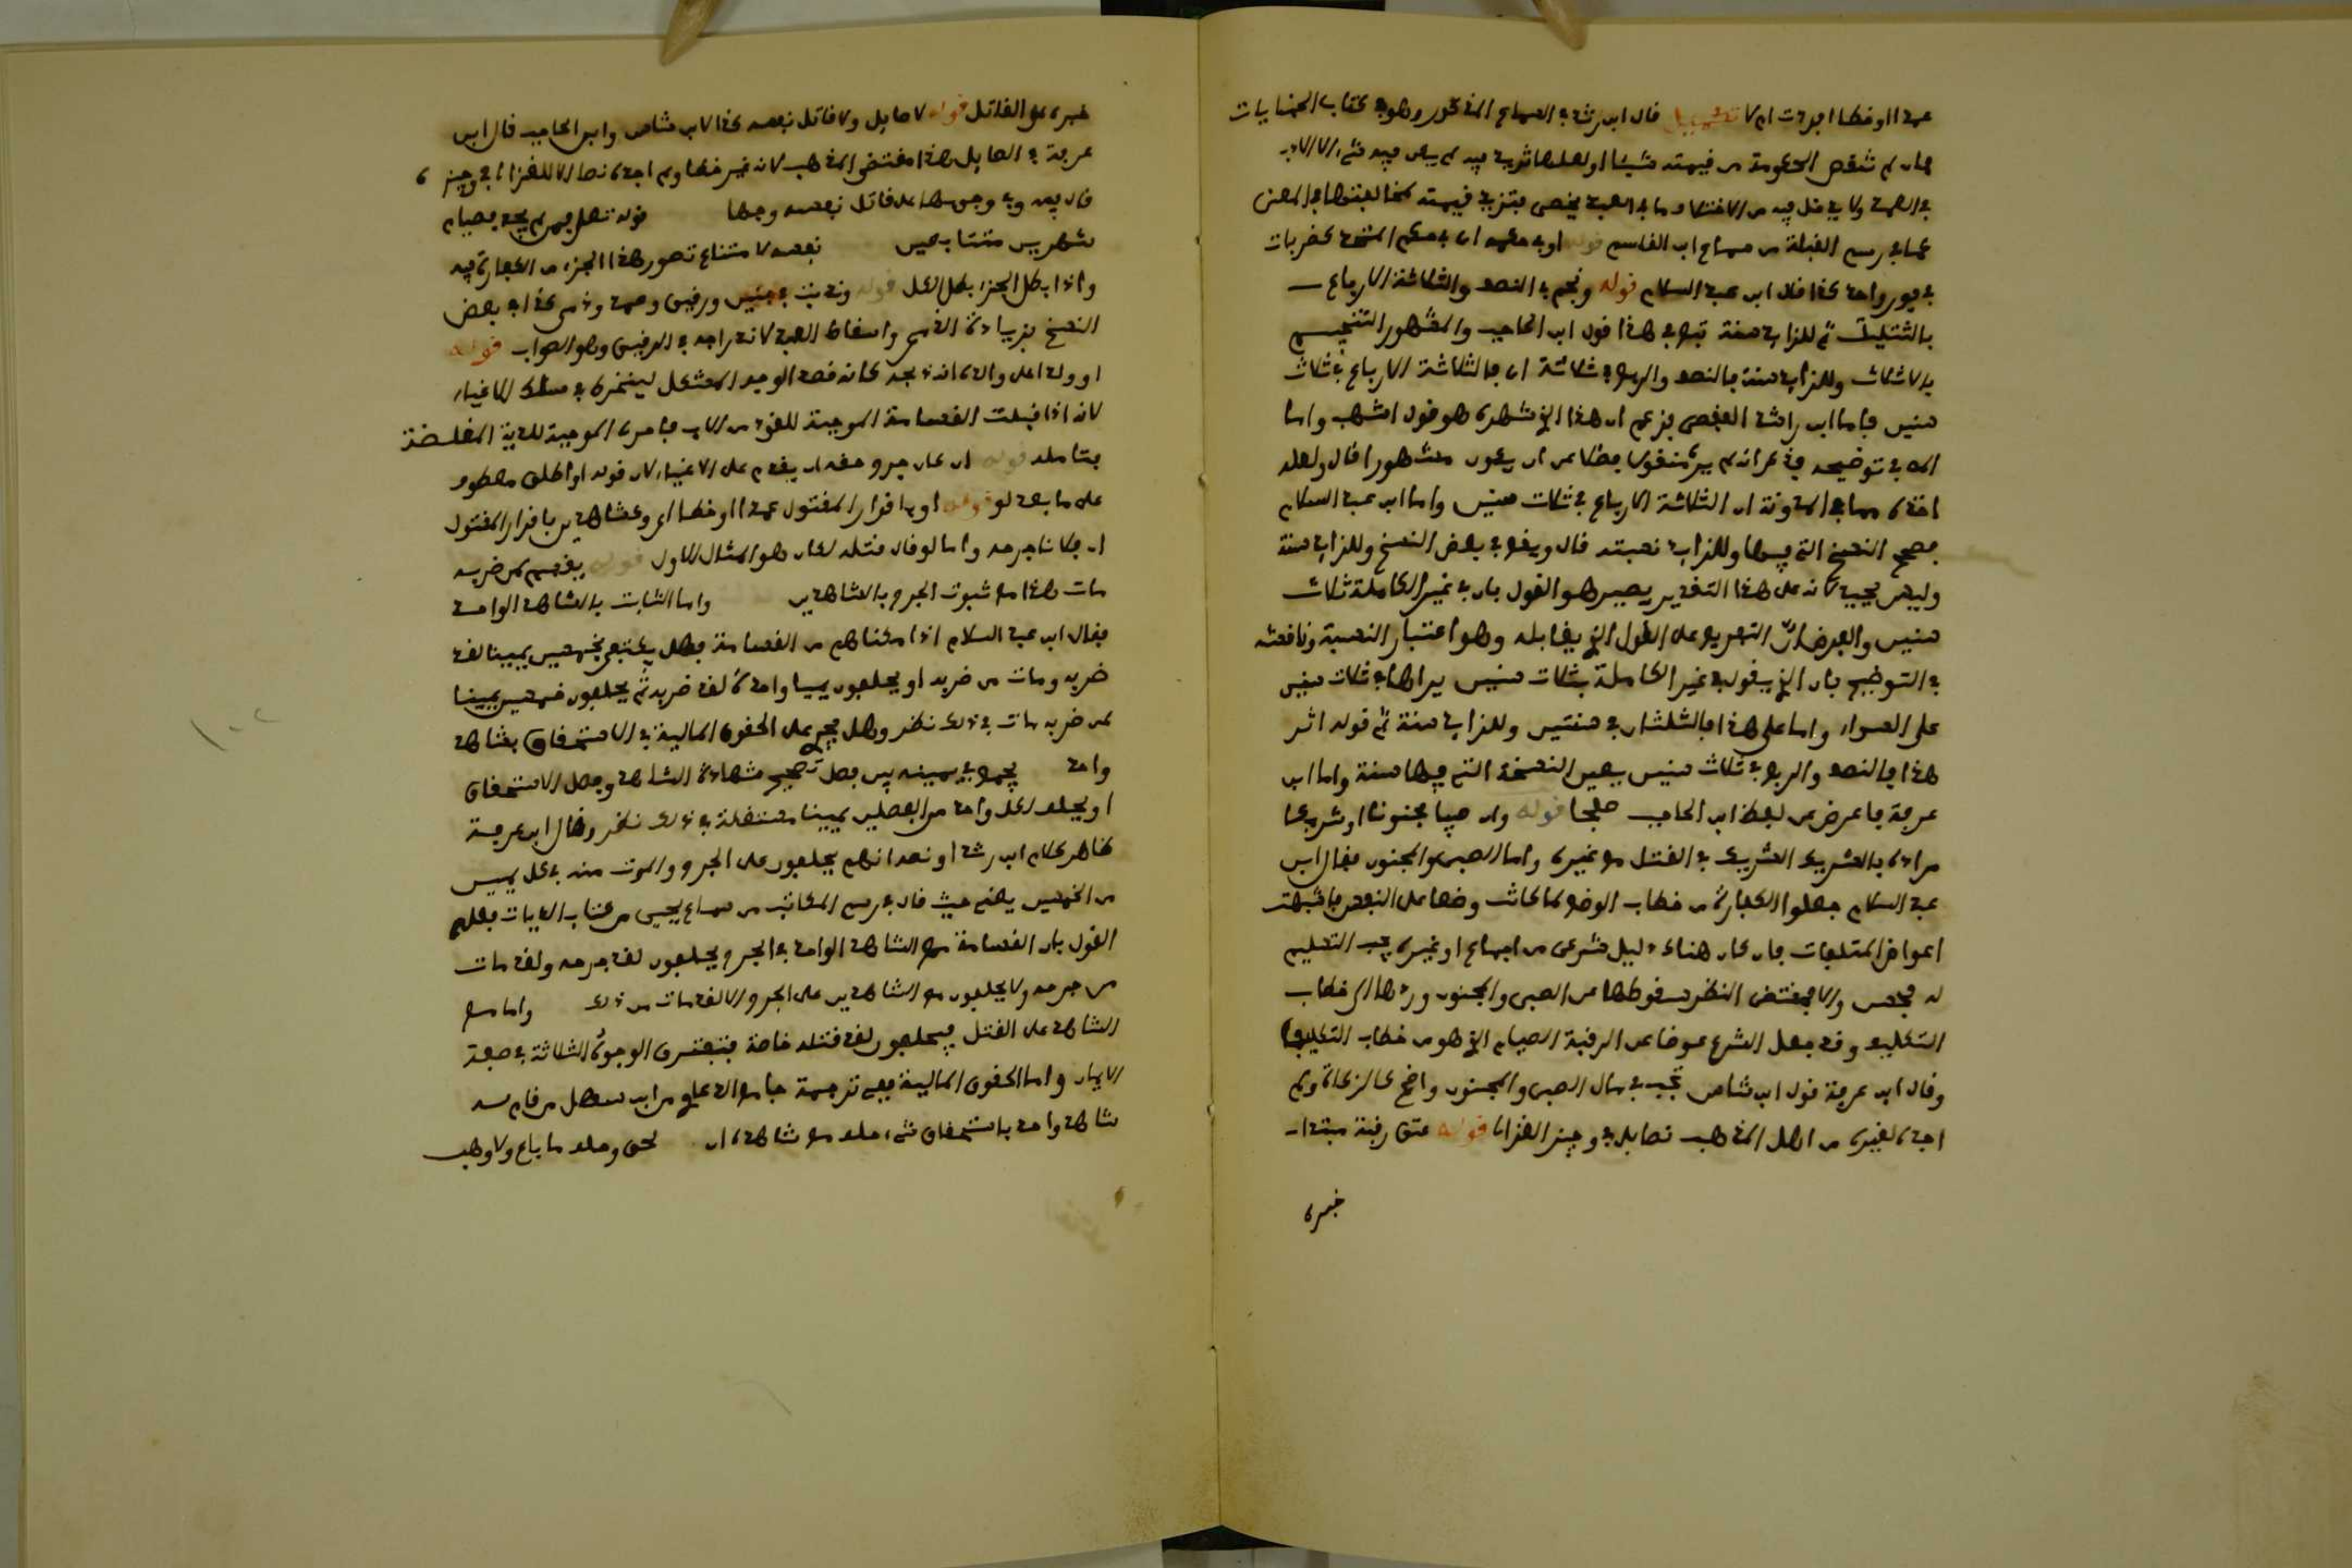 عمدا او خطأ اجزت ام لا قال ابن رشد في السماع المذكور وهو في كتاب الجنايات
فان لم تنقص الحكومة من قيمته شيئا او لعلها تزيد فيه لم يكن فيه شيء الا الادب
في العمد
كما في رسم القبلة من سماع ابن القاسم قوله او في حكمه اي في حكم المتحد كضربات
في فور واحد كذا قال ابن عبد السلام قوله ونجم في النصف والثلاثة الارباع
بالتثليث ثم للزايد سنة تبع في هذا قول ابن الحاجب والمشهور التنجيم
بالاثلاث وللزايد سنة فالنصف والربع ثلاثة اي فالثلاثة الارباع في ثلاث
سنين فاما ابن راشد القفصي فزعم ان هذا الذي شهره هو قول اشهب واما
في توضيحه فذكر انه لم يره منقولا فضلا عن ان يكون مشهورا قال ولعله
اخذه مما في المدونة ان الثلاثة الارباع في ثلاث سنين واما ابن عبد السلام
فصحح النسخ التي فيها وللزايد نسبته قال ويقع في بعض النسخ وللزايد سنة
وليس بجيد لانه على هذا التقدير يصير هو القول بان في غير الكاملة ثلاث
سنين والغرض ان التفريع على القول الذي يقابله وهو اعتبار النسبة وناقشه
في التوضيح بان الذي يقول في غير الكاملة بثلاث سنين يراها في ثلاث سنين
على السواء واما على هذا فالثلثان في سنتين وللزايد سنة ثم قوله اثر
هذا فالنصف والربع في ثلاث سنين يعين النسخة التي فيها سنة واما ابن
عرفة فاعرض عن لفظ ابن الحاجب صفحا قوله وان صبيا او مجنونا او شريكا
مراده بالشريك الشريك في القتل مع غيره واما الصبي والمجنون فقال ابن
عبد السلام جعلوا الكفارة من خطاب الوضع لما كانت عوضا عن النفس فاشبهت
اعواض المتلفات فان كان هناك دليل شرعي من اجماع او غيره يجب التسليم
له فحسن والا فمقتضى النظر سقوطها عن الصبي والمجنون وردها الى خطاب
التكليف وقد جعل الشرع عوضا عن الرقبة الصيام الذي هو من خطاب التكليف
وقال ابن عرفة قول ابن شاس تجب في مال الصبي والمجنون واضح كالزكاة ولم
اجده لغيره من اهل المذهب نصا بل في وجيز الغزالي قوله عتق رقبة
غيره
غيره هو القاتل قوله لا صايل ولا قاتل نفسه كذا لابن شاس وابن الحاجب قال ابن
عرفة في الصايل هذا مقتضى المذهب لانه غير خطأ ولم اجده نصا الا للغزالي في وجيزه
قال فيه وفي وجوبها على قاتل نفسه وجهان قوله تعالى فمن لم يجد فصيام
شهرين متتابعين نفسه لامتناع تصور هذا الجزء من الكفارة فيه
واذا بطل الجزء بطل الكل قوله وندبت في جنين ورقيق وعمد وذمي كذا في بعض
النسخ بزيادة الذمي واسقاط العبد لاندراجه في الرقيق وهو الصواب قوله
لانه اذا قبلت القسامة الموجبة للقود من الاب فاحرى الموجبة للدية المغلظة
فتامله قوله او اطلق معطوف
على ما بعد لو قوله او باقرار المقتول عمدا او خطأ اي وكشاهدين باقرار المقتول
ان فلانا جرحه واما لو قال قتله لكان هو المثال الاول قوله يقسم لمن ضربه
مات هذا مع ثبوت الجرح بالشاهدين واما الثابت بالشاهد الواحد
فقال ابن عبد السلام اذا مكناهم من القسامة فهل يكتفى بخمسين يمينا لقد
ضربه ومات من ضربه او يحلفون يمينا واحدة لقد ضربه ثم يحلفون خمسين يمينا
لمن ضربه مات في ذلك نظر وهل يجري على الحقوق المالية في الاستحقاق بشاهد
واحد يجمع في يمينه بين فصل تصحيح شهادة الشاهد وفصل الاستحقاق
او يحلف لكل واحد من الفصلين يمينا مستقلة في ذلك نظر وقال ابن عرفة
ظاهر كلام ابن رشد او نصه انهم يحلفون على الجرح والموت منه في كل يمين
من الخمسين حيث قال في رسم المكاتب من سماع يحيى من كتاب الديات
القول بان القسامة مع الشاهد الواحد في الجرح يحلفون لقد جرحه ولقد مات
من جرحه ولا يحلفون مع الشاهدين على الجرح الا لقد مات من ذلك واما مع
الشاهد على القتل فيحلفون لقد قتله خاصة فتفترق الوجوه الثلاثة في صفة
الايمان واما الحقوق المالية ففي ترجمة جامع الدعاوي من ابن سهل من قام له
شاهد واحد باستحقاق شيء حلف مع شاهده ان لحق وحلف ما باع ولا وهب